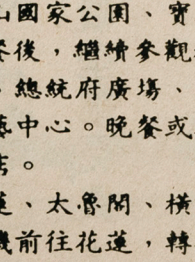 山國家公園、寶
餐後，繼續參觀
，總統府廣場、
藝中心。晚餐或
店。
蓮、太魯閣、橫
機前往花蓮，轉